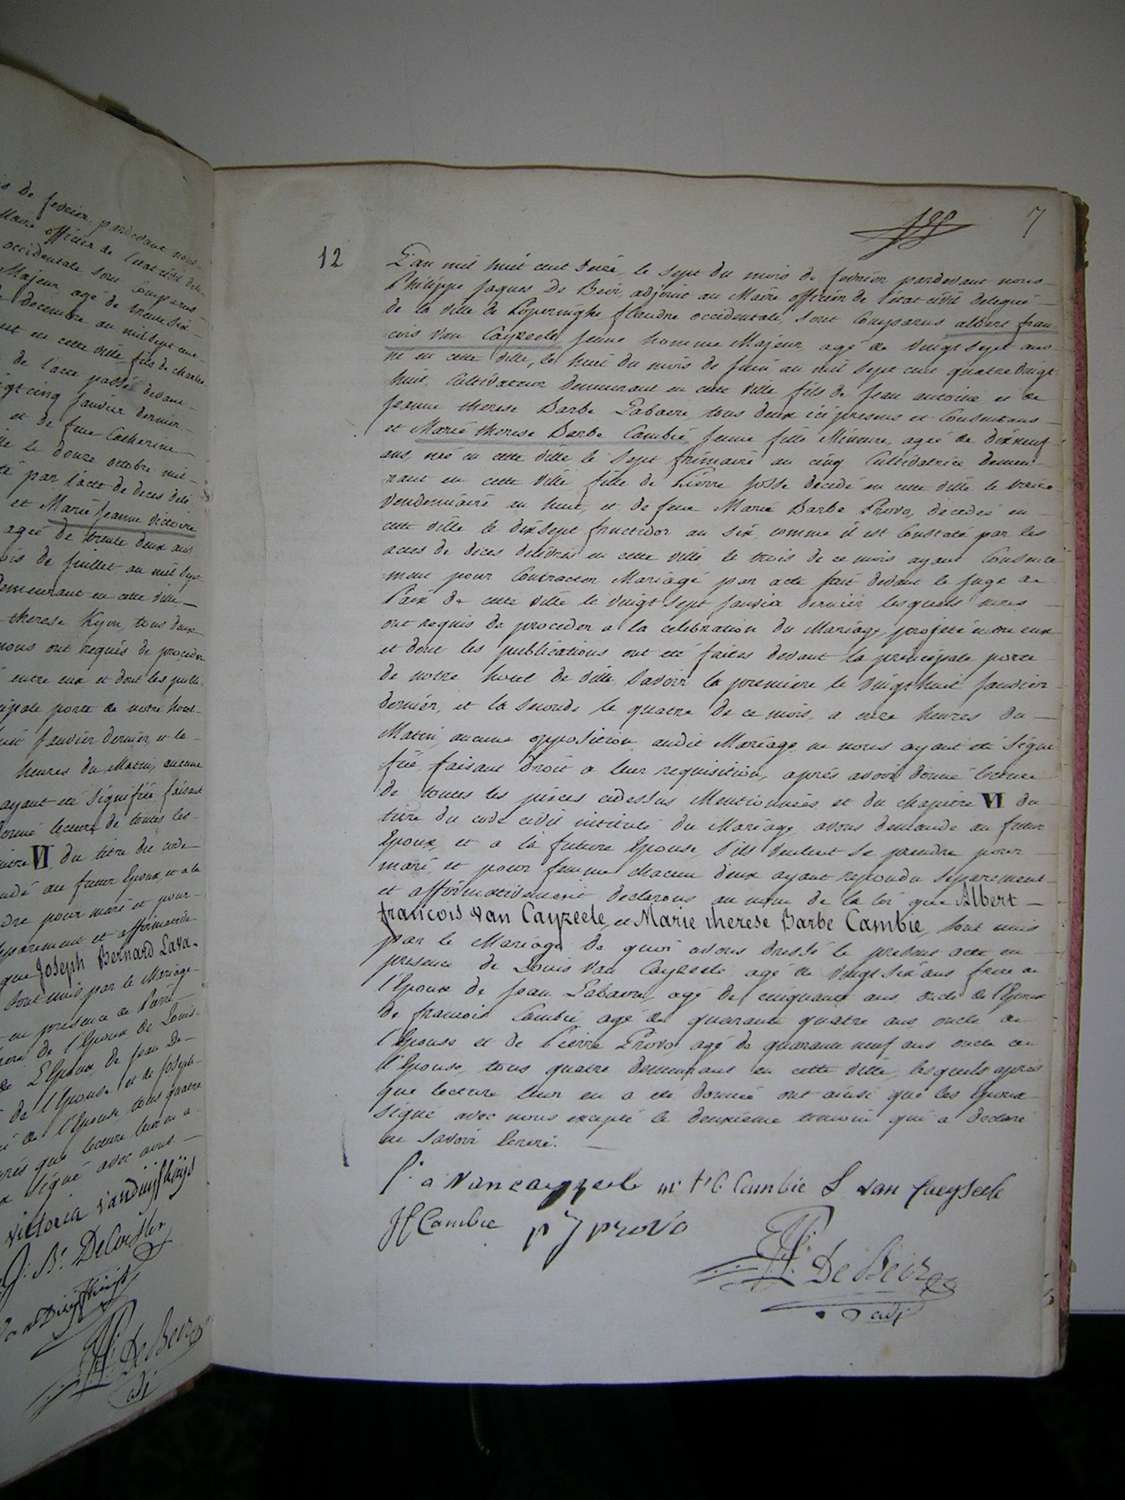 is de fevrier pardevant nous
Maire officier de l'etat civil dele-
occidentale sont comparus
Majeur, agé de trente six
decembre an mil sept cent
en cette ville, fils de charles
de l'acte passé devant
vingt cinq Janvier dernier
et de feue Catherine
le douze octobre mil
par l'acte de deces deli
et Marie Jeanne Victoire
agée de trente deux ans
mois de Juillet an mil sept
demeurant en cette ville
therese Kyon, tous deux
nous ont requis de proceder
entre eux et dont les publi-
cipale porte de notre hotel
huit Janvier dernier, et le
heures du Matin, aucune
ayant eté signifiée faisant
donné lecture de toutes les
VI du titre du code
au futur Epoux, et a la
prendre pour mari et pour
separement et affirmative
que Joseph Bernard Lava-
sont unis par le Mariage
en presence de
de l'Epoux de Louis
de L'Epoux, de Jean De
de l'Epouse et de Joseph
de l'Epouse, tous quatre
après que lecture leur en a
signé avec nous
victoria vanduijfhuijs
J. Bte DeCoesler
De Beir
adj
7
12
L'an mil huit cent treize, le sept du mois de fevrier pardevant nous
Philippe Jaques De Beir, adjoint au Maire officier de l'etat civil delegué
de la ville de Poperinghe flandre occidentale, sont Comparus albert fran
cois Van Cayzeele, Jeune homme Majeur, agé de vingt sept ans
né en cette ville, le huit du mois de Juin an mil sept cent quatre vingt
huit, Cultivateur demeurant en cette ville fils de Jean antoine et de
Jeanne therese Barbe Labaere, tous deux ici presens et Consentans
et Marie therese Barbe Cambie, Jeune fille Mineure, agée de dixneuf
ans, née en cette ville le sept frimaire an cinq Cultivatrice demeu-
rant en cette ville fille de Pierre Josse decédé en cette ville le treize
Vendemiaire an huit, et de feue Marie Barbe Provo, décedée en
cette ville le dixsept fructidor an six, comme il est Constaté par les
actes de deces delivrés en cette ville le trois de ce mois ayant Consente
ment pour Contracter Mariage par acte fait devant le Juge de
Paix de cette ville le vingt sept Janvier dernier, lesquels nous
ont requis de proceder a la celebration du Mariage projeté entre eux
et dont les publications ont eté faites devant la principale porte
de notre hotel de ville Savoir la premiere le vingt huit Janvier
dernier, et la seconde le quatre de ce mois, a onze heures du
Matin, aucune opposition audit Mariage ne nous ayant eté signi
fiée faisant droit a leur requisition, après avoir donné lecture
de toutes les pieces cidessus Mentionnées, et du chapitre VI du
titre du code civil intitulé du Mariage, avons demandé au futur
Epoux, et a la future Epouse, s'ils veulent se prendre pour
mari et pour femme, chacun deux ayant repondu separement
et affirmativement declarons au nom de la loi que Albert
francois van Cayzeele, et Marie therese Barbe Cambie, sont unis
par le Mariage de quoi avons dressé le present acte en
presence de Louis Van Cayzeele agé de vingt six ans frere de
l'Epoux de Jean Labaere, agé de cinquante ans, oncle de l'Epoux
de francois Cambie agé de quarante quatre ans oncle de
l'Epouse et de Pierre Provo agé de quarante neuf ans oncle de
l'Epouse, tous quatre demeurant en cette ville, lesquels après
que lecture leur en a eté donnée ont ainsi que les Epoux
signé avec nous excepté le deuxieme temoin qui a declaré
ne savoir Ecrire.
a vancayzeele m t b Cambie L van Cueyseele
Cambie p J provo
De Beir
adj